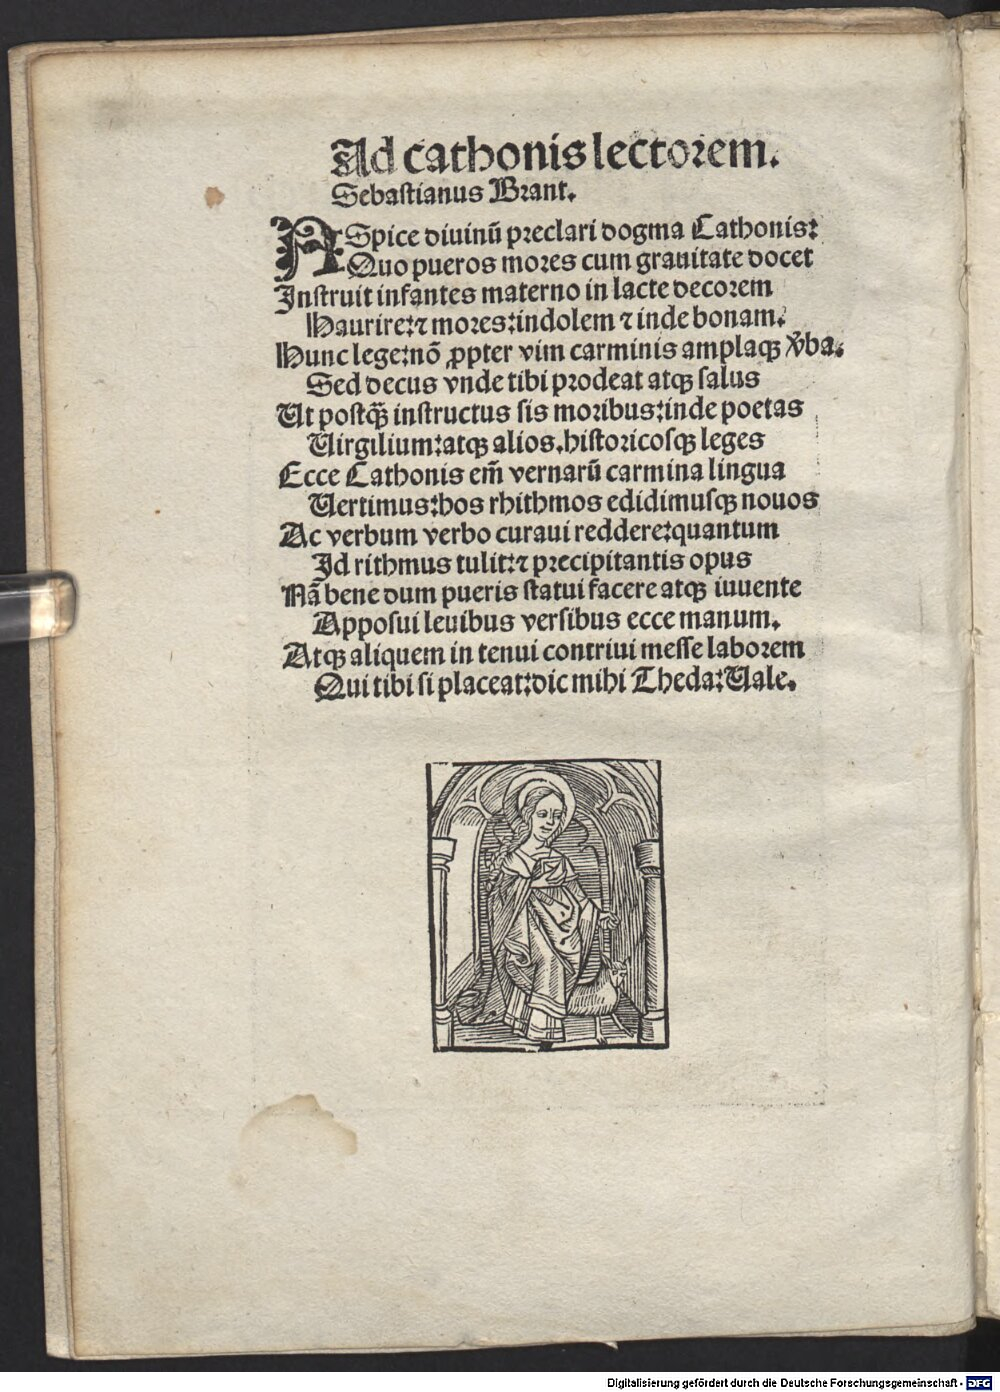 Ad cathonis lectorem.
Sebastianus Brant.
ASpice diuinū preclari dogma Cathonis:
Quo pueros mores cum grauitate docet
Instruit infantes materno in lacte decorem
Haurire: ⁊ mores: indolem ⁊ inde bonam.
Hunc lege: nō ꝓpter vim carminis amplaqꝫ v̄ba.
Sed decus vnde tibi prodeat atqꝫ salus
Ut postqꝫ̄ instructus sis moribus: inde poetas
Uirgilium: atqꝫ alios. historicosqꝫ leges
Ecce Cathonis em̄ vernarū carmina lingua
Uertimus: hos rhithmos edidimusqꝫ nouos
Ac verbum verbo curaui reddere: quantum
Id rithmus tulit: ⁊ precipitantis opus
Nā bene dum pueris statui facere atqꝫ iuuente
Apposui leuibus versibus ecce manum.
Atqꝫ aliquem in tenui contriui messe laborem
Qui tibi si placeat: dic mihi Theda: Uale.
Digitalisierung gefördert durch die Deutsche Forschungsgemeinschaft - DFG